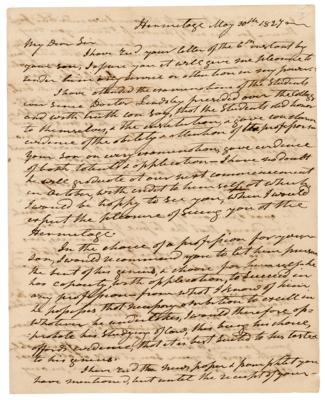 Hermitage May 30th 1827
My Dear Sir
I have recd your letter of the 6th instant by
your son, I assure you it will give me pleasure to
render him any service or attention in my power.
I have attended the examinations of the Students
ever since Doctor Lindsley presided over the College
and with truth can say, that the Students did honor
to themselves, & the institution, & gave conclusive
evidence of the ability & attention of the professors
Your son on every examination, gave evidence
of both talents & application. I have no doubt
he will graduate at our next commencement
in October, with credit to himself, at where
I would be happy to see you, when I would
expect the pleasure of seeing you at the
Hermitage
In the choice of a profession for your
son, I would recommend you to let him pursue
the bent of his genius, & choose for himself, he
has capacity, with application to succeed in
any profession & from what I know of him
he possesses that necessary ambition to excell in
whatever he undertakes, I would therefore ap=
probate his studying of law, this being his choice,
affords evidence, that it is best suited to his taste &
to his genius.
I have recd the news paper & pamphlet you
have mentioned, but until the receipt of your